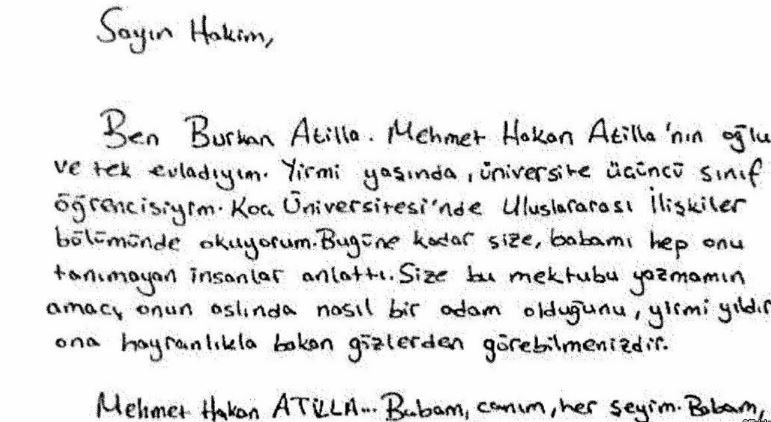 Sayın Hakim,
Ben Burhan Atilla. Mehmet Hakan Atilla'nın oğlu
ve tek evladıyım. Yirmi yaşında, üniversite üçüncü sınıf
öğrencisiyim. Koç Üniversitesi'nde Uluslararası İlişkiler
bölümünde okuyorum. Bugüne kadar size, babamı hep onu
tanımayan insanlar anlattı. Size bu mektubu yazmamın
amacı, onun aslında nasıl bir adam olduğunu, yirmi yıldır
ona hayranlıkla bakan gözlerden görebilmenizdir.
Mehmet Hakan ATİLLA... Babam, canım, her şeyim. Babam,